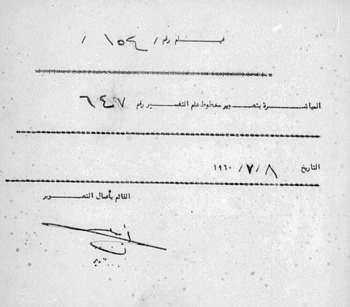 فيلم رقم / ١٥٤ /
المباشرة بتصوير مخطوط علم التفسير رقم ٦٤٧
التاريخ ٨ / ٧ / ١٩٦٠
القائم بأعمال التصوير